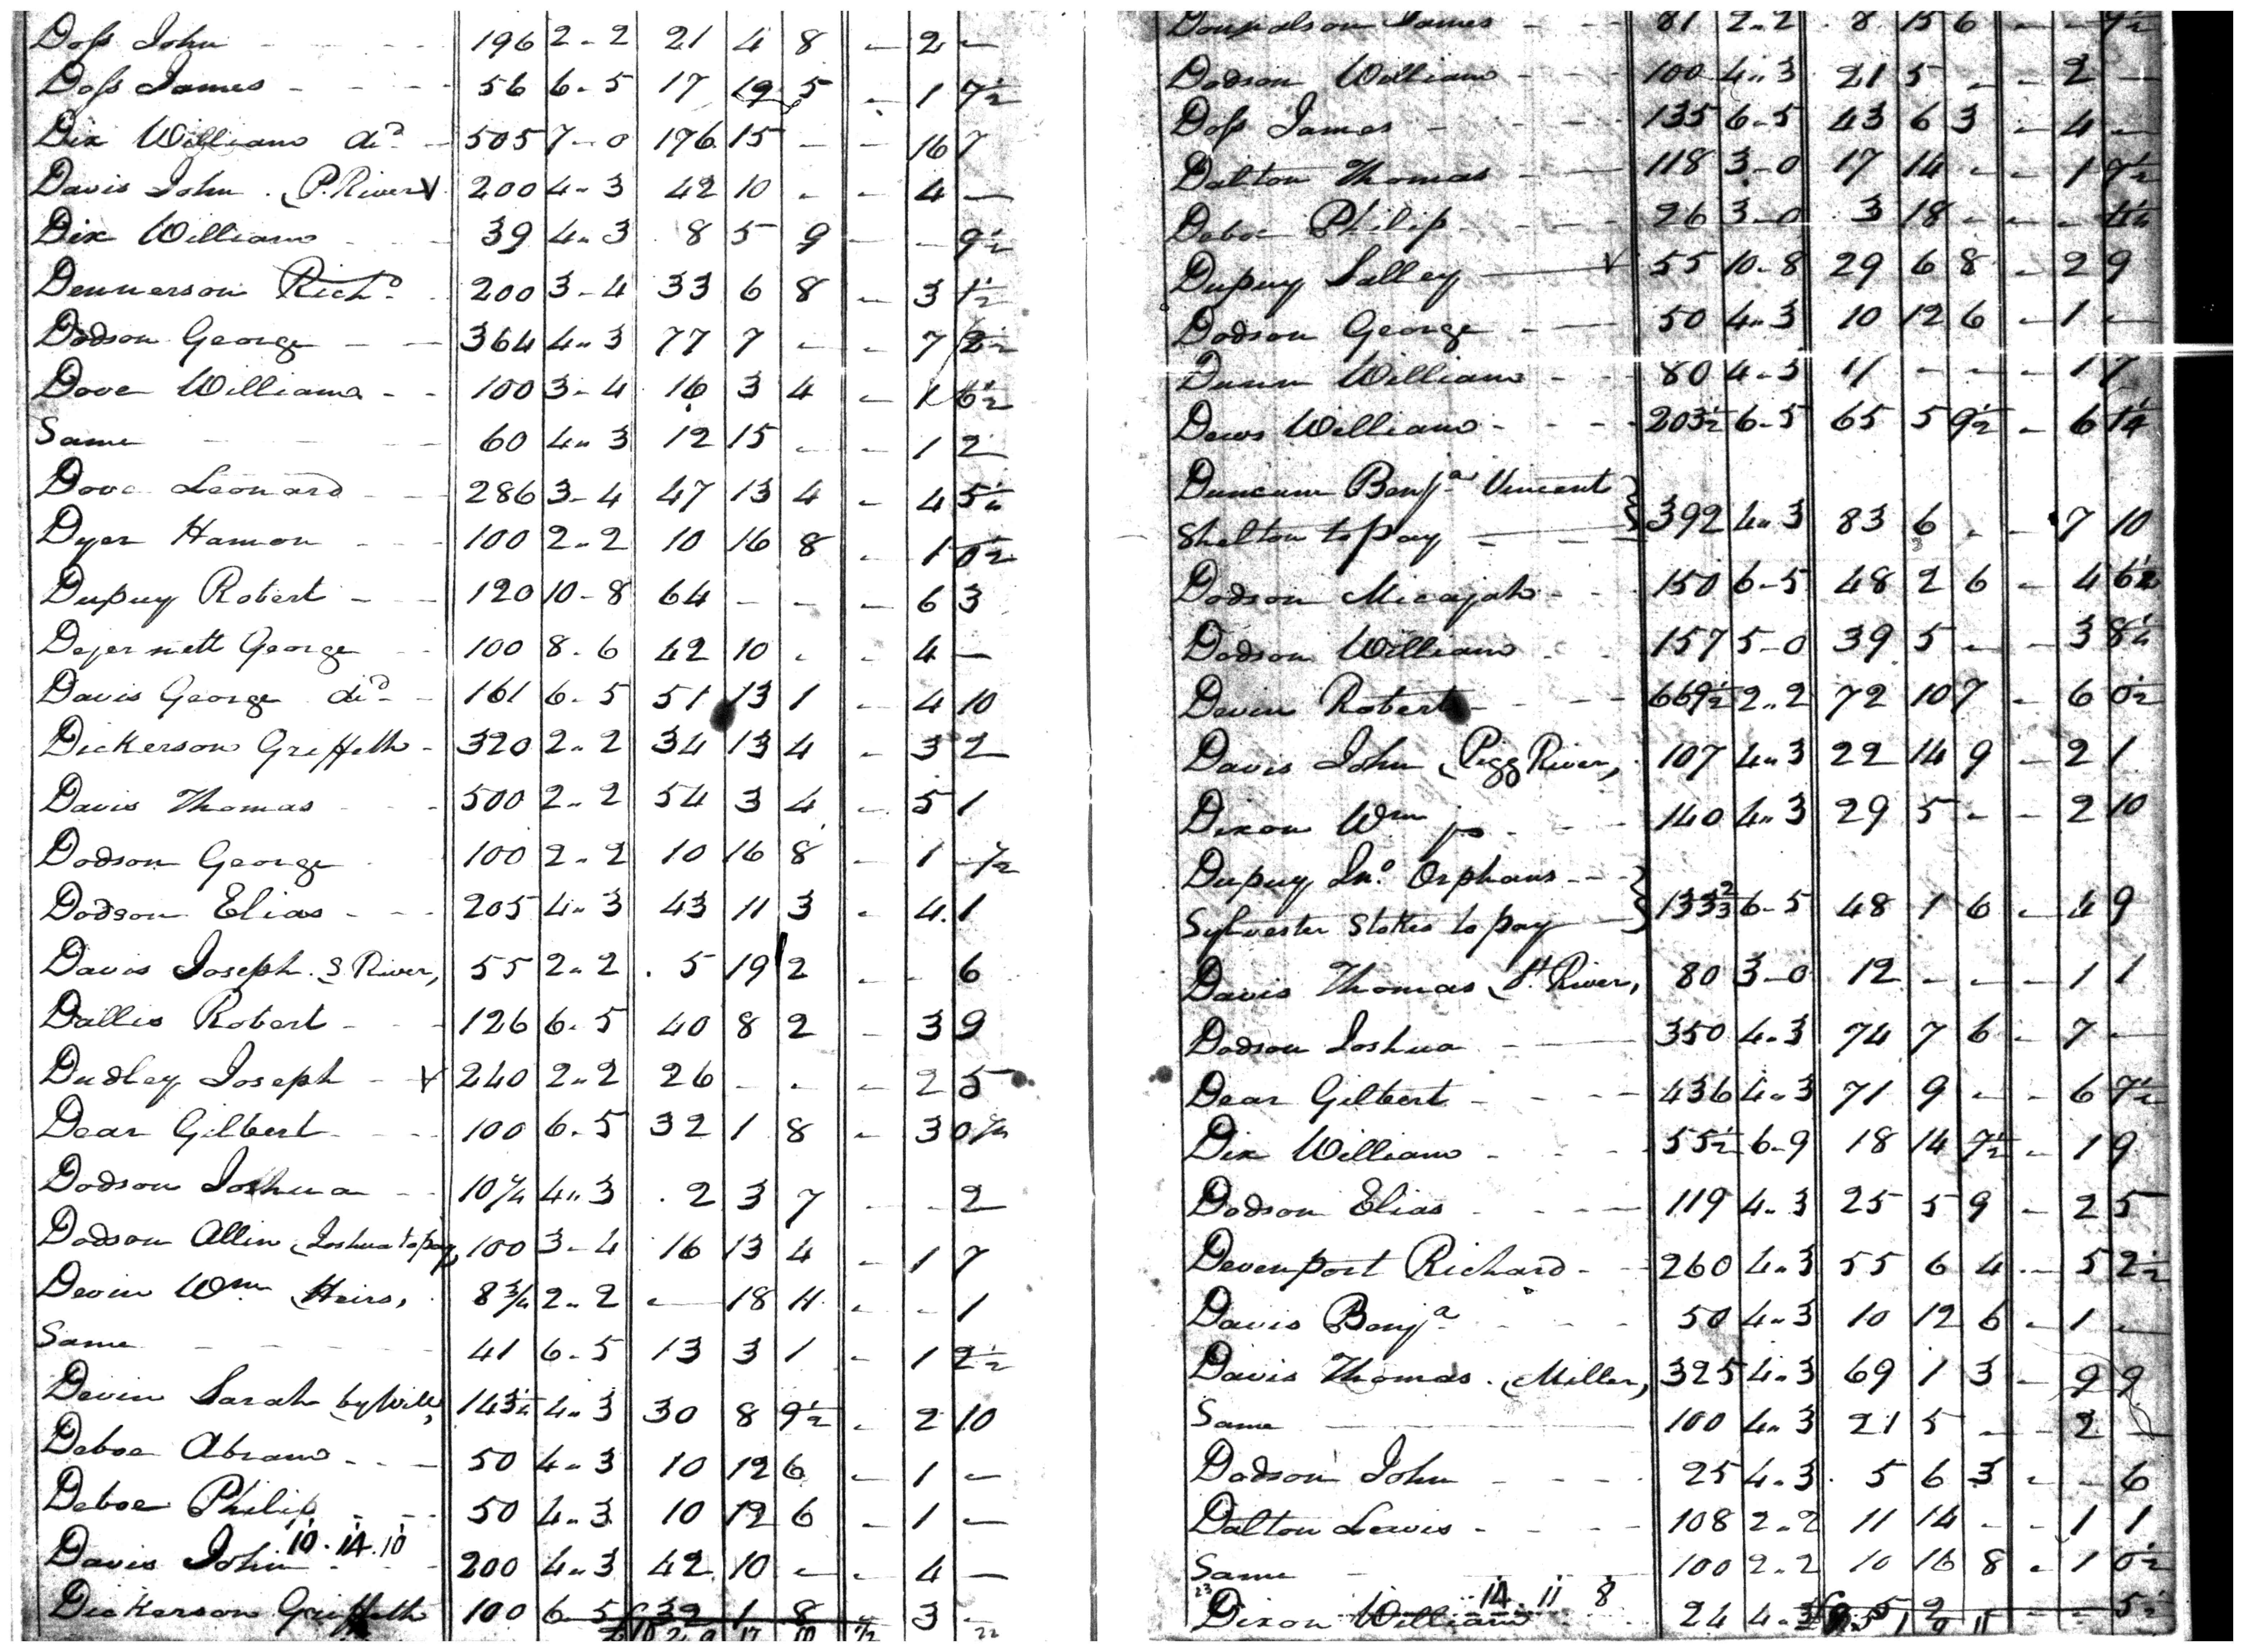 Doſs John - - - - 196 2-2 21 4 8 - 2 -
Doſs James - - - - 56 6-5 17 19 5 - 1 7½
Dix William do - 505 7-0 176 15 - - 16 7
Davis John (P. River V 200 4-3 42 10 - - 4 -
Dix William - - 39 4-3 8 5 9 - - 9½
Dennerson Richd 200 3-4 33 6 8 - 3 1½
Dodson George - - 364 4-3 77 7 - - 7
Dove William - - 100 3-4 16 3 4 - 1 6½
Same - - - 60 4-3 12 15 - - 1 2
Dove Leonard - - 286 3-4 47 13 4 - 4 5½
Dyer Hamon - - - 100 2-2 10 16 8 - 1 0½
Dupuy Robert - - 120 10-8 64 - - - 6 3
Dejernett George - - 100 8-6 42 10 - - 4 -
Davis George do - 161 6-5 51 13 1 4 10
Dickerson Griffeth - 320 2-2 34 13 4 - 3 2
Davis Thomas - - - 500 2-2 54 3 4 - 5 1
Dodson George - 100 2-2 10 16 8 - 1 -½
Dodson Elias - - - 205 4-3 43 11 3 - 4 1
Davis Joseph (S River, 55 2-2 5 19 2 - - 6
Dallis Robert - - - 126 6-5 40 8 2 - 3 9
Dudley Joseph - V 240 2-2 26 - - - 2 5
Dear Gilbert - - - 100 6-5 32 1 8 - 3
Dodson Joshua - - 10¼ 4-3 2 3 7 - - 2
Dodson Allin (Joshua to pay, 100 3-4 16 13 4 - 1 7
Devin Wm (Heirs, 8¾ 2-2 - 18 11 - - 1
Same - - - - 41 6-5 13 3 1 - 1 2½
Devin Sarah by Will, 4-3 30 8 9½ - 2 10
Deboe Abram - - - 50 4-3 10 12 6 - 1 -
Deboe Philip - - 50 4-3 10 12 6 - 1 -
10.14.10
Davis John - - 200 4-3 42 10 - - 4 -
Dickerson Griffeth 100 6-5 32 1 8 3
Donaldson James - - 81 2-2 8 15 6 - - 9½
Dodson William - - - 100 4-3 21 5 - - 2 -
Doſs James - - - - 135 6-5 43 6 3 - 4 -
Dalton Thomas - - 118 3-0 17 14 - - 1 7½
Deboe Philip - - - - 26 3-0 3 18 - - -
Dupuy Salley - V 55 10-8 29 6 8 - 2 9
Dodson George - - 50 4-3 10 12 6 - 1 -
Dunn William - - 80 4-3 11 - - - 1 7
Dews William - - - 203½ 6-5 65 5 9½ - 6 1¼
Duncum Benja Vincent
Shelton to pay - - - 392 4-3 83 6 - - 7 10
Dodson Micajah - - 150 6-5 48 2 6 - 4 6½
Dodson William - - 157 5-0 39 5 - - 3 8½
Devin Robert - - - 669½ 2-2 72 10 7 - 6 0½
Davis John (Pigg River, 107 4-3 22 14 9 - 2 1
Dixon Wm jr - - - 140 4-3 29 5 - - 2 10
Dupuy Jno. Orphans - - -
Sylvester Stokes to pay - 133⅔ 6-5 48 1 6 - 4 9
Davis Thomas River, 80 3-0 12 - - - 1 1
Dodson Joshua - - 350 4-3 74 7 6 - 7 -
Dear Gilbert - - - - 436 4-3 71 9 - - 6 7½
Dix William - - - 55½ 6-9 18 14 7½ - 1 9
Dodson Elias - - - 119 4-3 25 5 9 - 2 5
Devenport Richard - - 260 4-3 55 6 4 - 5 2½
Davis Benja - - - 50 4-3 10 12 6 - 1 -
Davis Thomas (Miller, 325 4-3 69 1 3 - 9 9
Same - 100 4-3 21 5 - - 2 -
Dodson John - - - - 25 4-3 5 6 3 - - 6
Dalton Lewis - - - - 108 2-2 11 14 - - 1 1
Same - 100 2-2 10 16 8 - 1 0½
14. 11 8
23 Dixon William 24 4-3 5 2 - - 5½